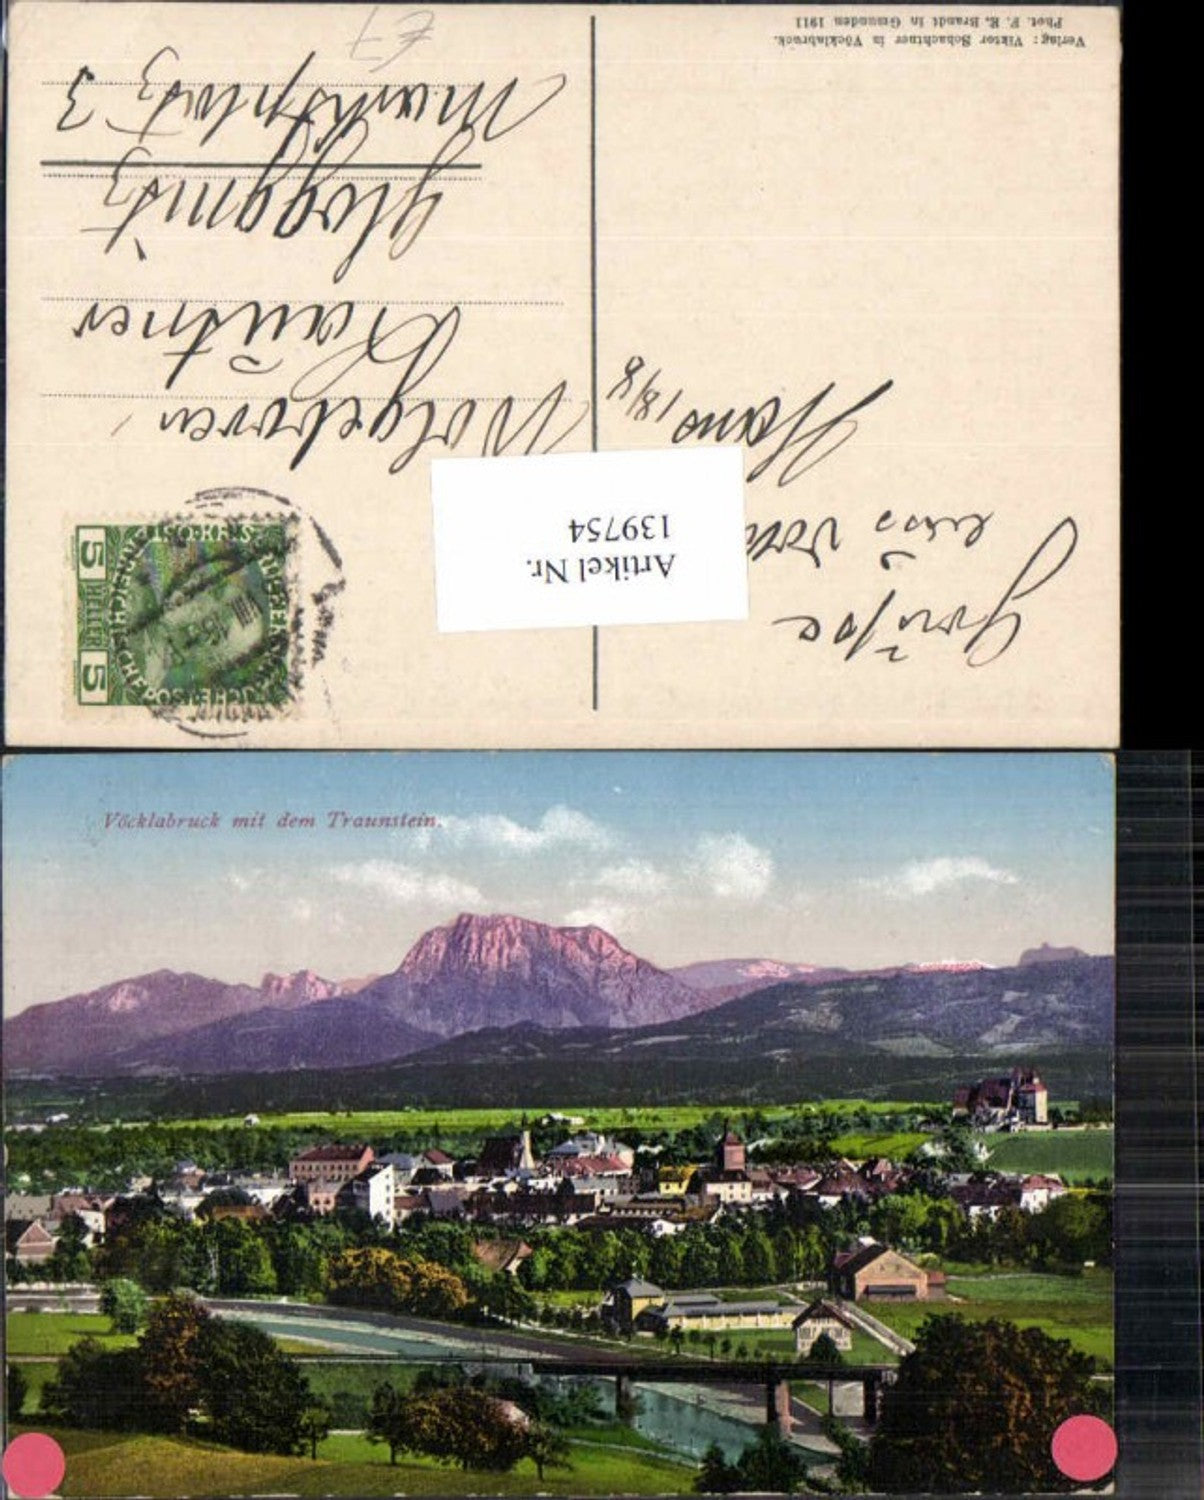 Verlag: Viktor Schachtner in Vöcklabruck.
Phot. F. E. Brandt in Gmunden 1911
Grüße
aus
18/8
Artikel Nr.
139754
Wolgeboren
Gloggnitz
3
€7
5 HELLER 5
Vöcklabruck mit dem Traunstein.